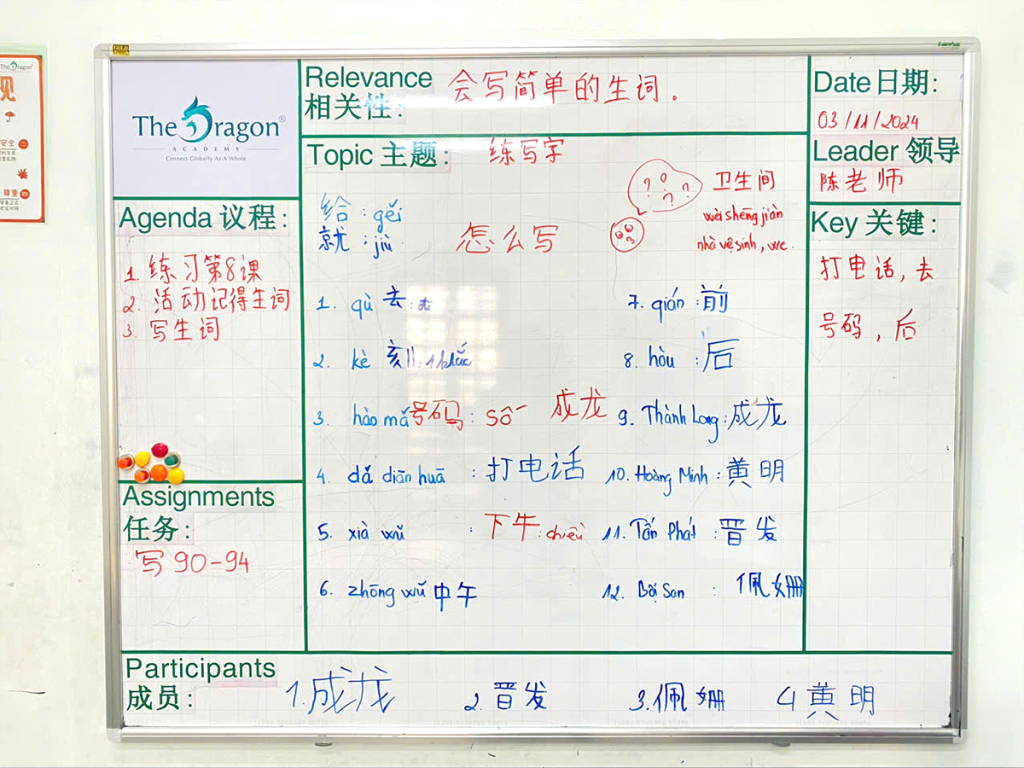 The Dragon®
ACADEMY
Connect Globally As A Whole
Relevance
相关性:
会写简单的生词.
Date日期:
03/11/2024
Leader 领导
陈老师
Agenda 议程:
1. 练习第8课
2. 活动记得生词
3. 写生词
Topic 主题:
练写字
给 : gěi
就 : jiù
怎么写
? ? ? ?
卫生间
wèi shēng jiān
nhà vệ sinh, wc.
1. qù 去 : đi
2. kè 刻 : 1 khắc
3. hào mǎ 号码 : số
成龙
4. dǎ diàn huā : 打电话
5. xià wǔ : 下午 : chiều
6. zhōng wǔ 中午
7. qián : 前
8. hòu : 后
9. Thành Long : 成龙
10. Hoàng Minh : 黄明
11. Tấn Phát : 晋发
12. Bội San : 佩姗
Key 关键:
打电话, 去
号码, 后
Assignments
任务:
写 90-94
Participants
成员:
1. 成龙
2. 晋发
3. 佩姗
4 黄明